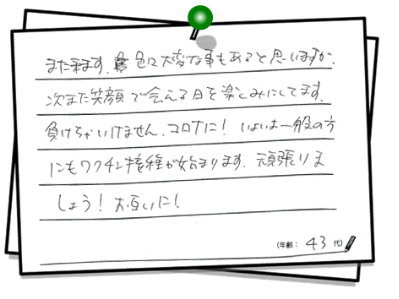 また来ます。色々大変な事もあると思いますが、
次また笑顔で会える日を楽しみにしてます。
負けちゃいけません、コロナに！いよいよ一般の方
にもワクチン接種が始まります。頑張りま
しょう！お互いに！
(年齢： 43 代)